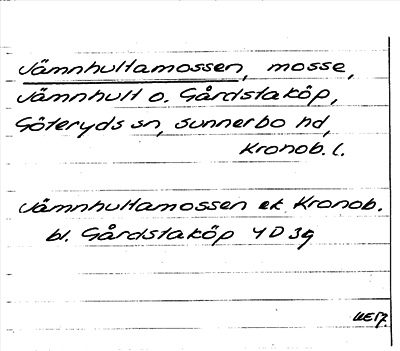 Jämnhultamossen, mosse,
Jämnhult o. Gårdstaköp,
Göteryds sn, Sunnerbo hd,
Kronob. l.
Jämnhultamossen ek. Kronob.
bl. Gårdstaköp 4D3g